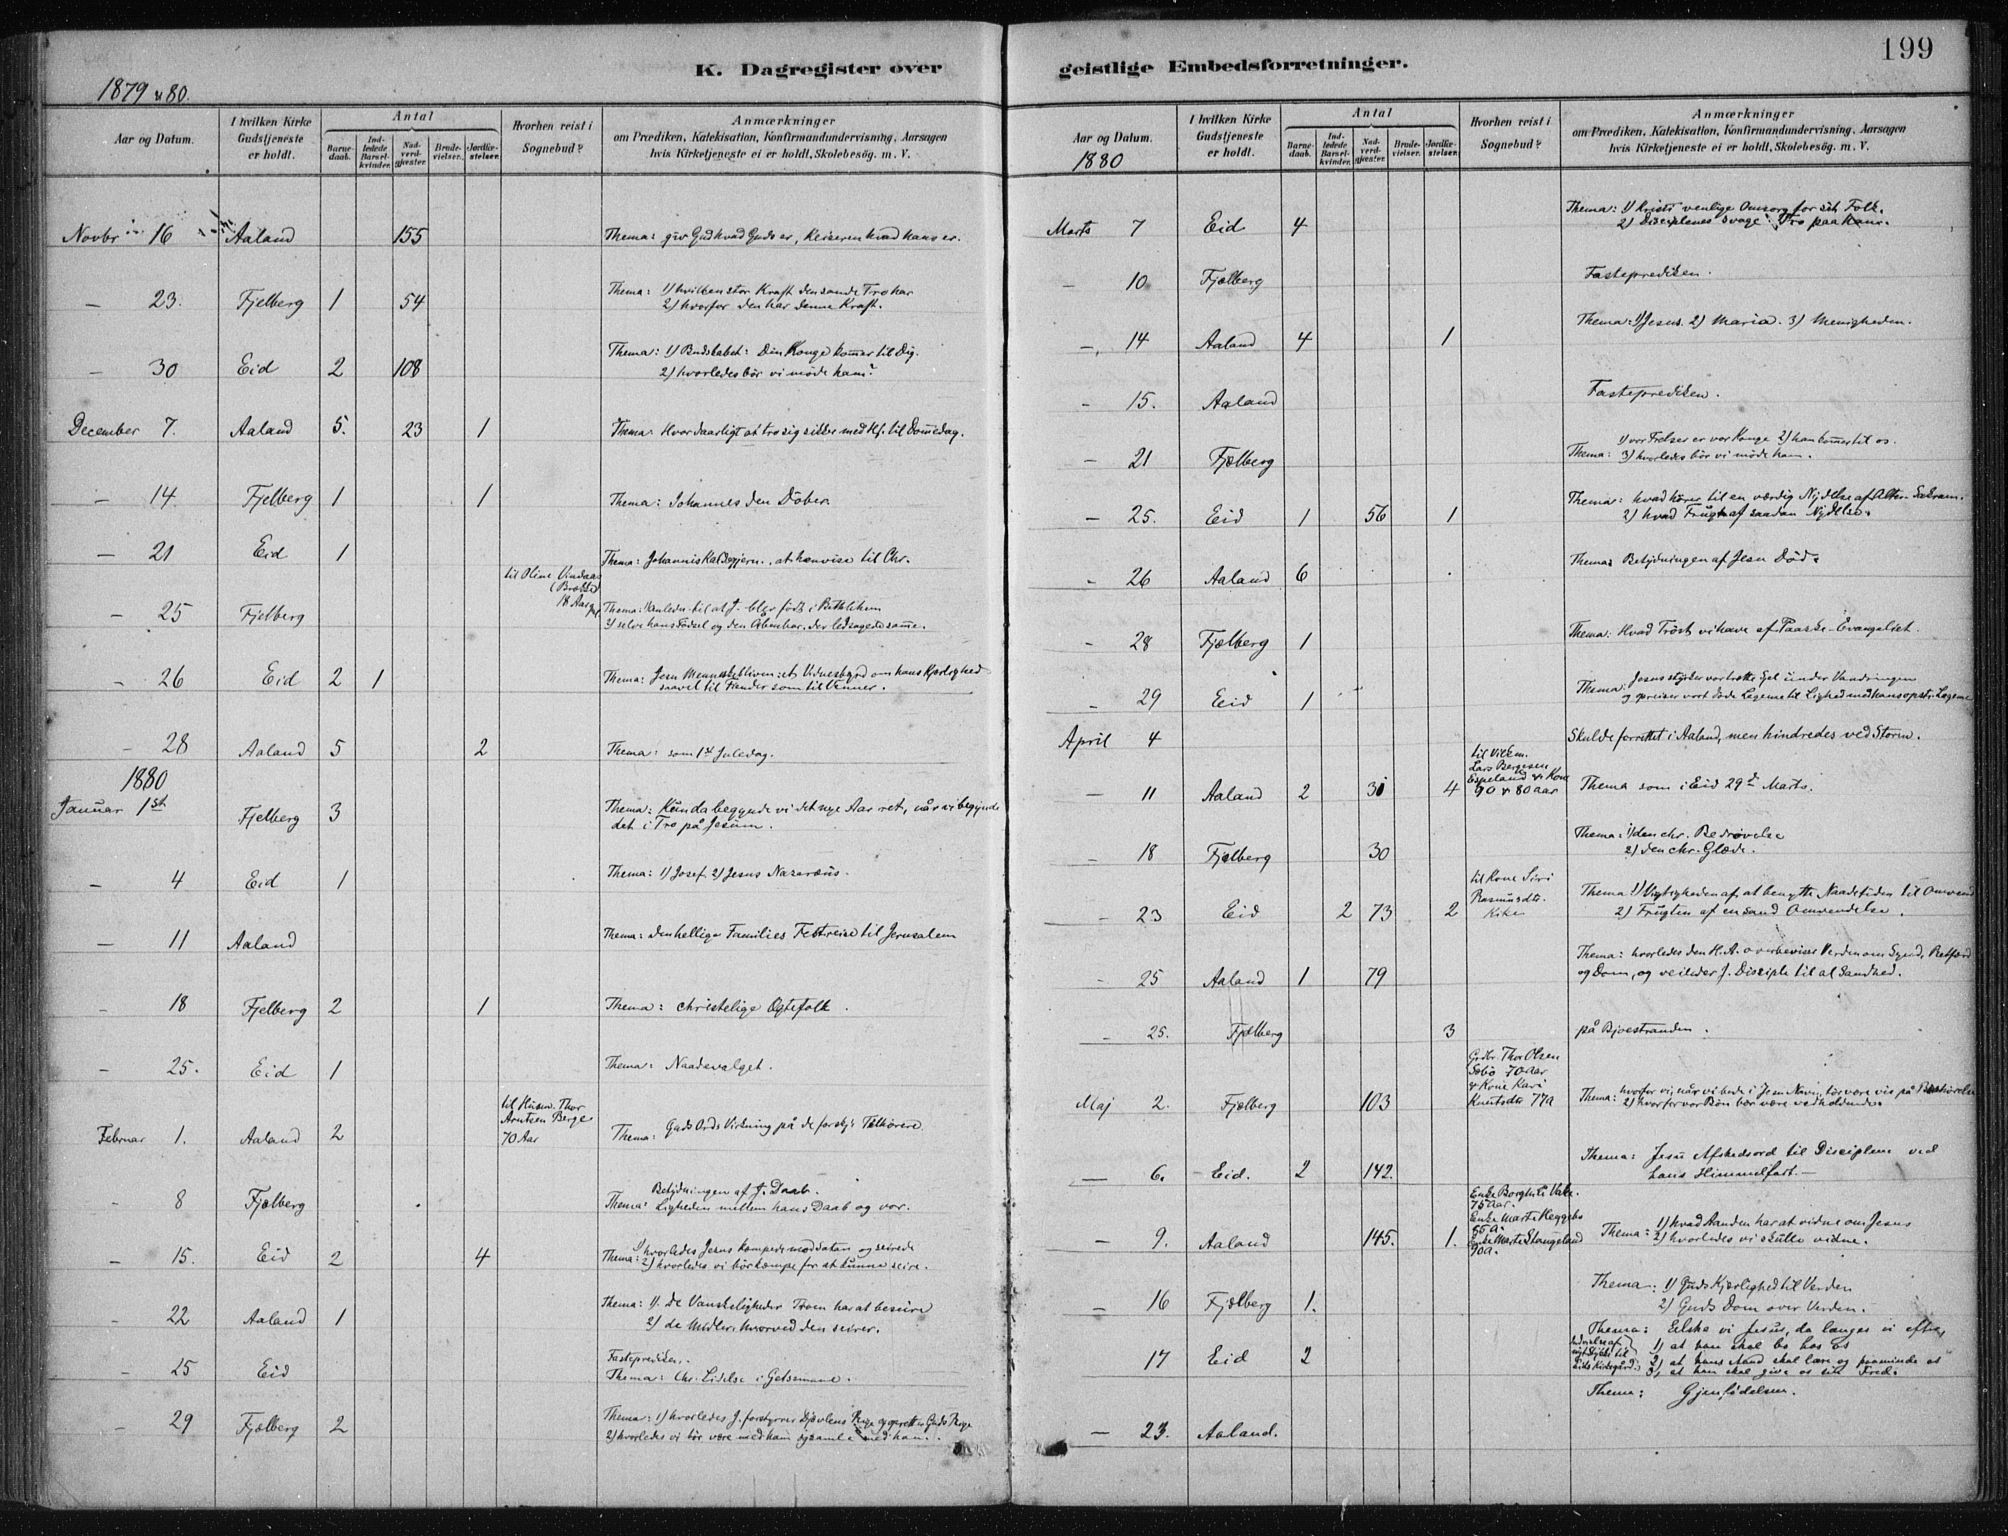 199
K. Dagregister over
geistlige Embedsforretninger.
1879 & 80.
Aar og Datum.
I hvilken Kirke Gudstjeneste er holdt.
Antal
Barnedaab.
Indledede Barselkvinder.
Nadverdgjester.
Brudevielser.
Jordkestelser.
Hvorhen reist i Sognebud?
Anmærkninger
om Prædiken, Katekisation, Konfirmandundervisning, Aarsagen
hvis Kirketjeneste ei er holdt, Skolebesøg. m. V.
Novbr 16 Aaland 155 Thema: giv Gud hvad Guds er, Keiseren hvad hans er.
— 23. Fjelberg 1 54 Thema: 1) hvilken stor Kraft den sande Tro har
2) hvorfor den har denne Kraft.
— 30 Eid 2 108 Thema: 1) Budskabet: Din Konge kommer til Dig.
2) hvorledes bör vi möde ham?
December 7. Aaland 5. 23 1 Thema: Hvor daarligt at tro sig sikker med H. til Domedag.
— 14 Fjelberg 1 1 Thema: Johannes den Döber.
— 21 Eid 1 Thema: Johannis Kaldsgjern. at henvise til Chr.
til Oline Vindaas
18 Aar
— 25 Fjelberg Thema: 1) anleden til at J. blev födt i Bethlehem
2) selve hans Födsel og den Åbenbar. der ledsagede samme.
— 26 Eid 2 1 Thema: Jesu Menneskebliven: et Vidnesbyrd om hans Kjerlighed
saavel til Fiender som til Venner.
— 28 Aaland 5 2 Thema: som 1st Juledag.
1880
Januar 1st Fjelberg 3 Thema: Kun da begynde vi det nye Aar ret, når vi begynde
det i Tro på Jesum.
— 4 Eid 1 Thema: 1) Josef. 2) Jesus Nazaræus.
— 11 Aaland Thema: den hellige Families Festreise til Jerusalem
— 18 Fjelberg 2 1 Thema: christelige Ægtefolk.
— 25. Eid 1 Thema: Naadevalget.
til Husm. Thor
Arntsen Berge
70 Aar
Februar 1. Aaland 2 Thema: Guds Ords Virkning på de forskj. Tilhörere.
— 8 Fjelberg Thema: Betydningen af J. Daab.
Ligheden mellem hans Daab og vor.
— 15. Eid 2 4 Thema: 1) hvorledes Jesus kjempede mod Satan og seirede
2) hvorledes vi bör kjempe for at kunne seire.
— 22 Aaland 1 Thema: 1). De Vanskeligheder Troen har at beseire
2) de Midler, hvorved den seirer.
— 25 Eid Fasteprediken.
Thema: Chr. Lidelse i Getsemane.
— 29 Fjelberg 2 Thema: 1) hvorledes J. forstyrrer Djevlens Rige og opretter Guds Rige
2) hvorledes vi bör være med ham og samle med ham.
Aar og Datum.
1880
I hvilken Kirke Gudstjeneste er holdt.
Antal
Barnedaab.
Indledede Barselkvinder.
Nadverdgjester.
Brudevielser.
Jordkestelser.
Hvorhen reist i Sognebud?
Anmærkninger
om Prædiken, Katekisation, Konfirmandundervisning, Aarsagen
hvis Kirketjeneste ei er holdt, Skolebesøg. m. V.
Marts 7 Eid 4 Thema: 1) Kristi venlige Omsorg for sit Folk.
2) Disciplenes svage Tro paa ham.
— 10 Fjelberg Fasteprediken.
— 14 Aaland 4 1 Thema: 1) Jesus. 2) Maria. 3) Menigheden.
— 15. Aaland Fasteprediken.
— 21 Fjelberg Thema: 1) vor Frelser er vor Konge 2) han kommer til os.
3) hvorledes bör vi möde ham.
— 25. Eid 1 56 1 Thema: hvad hörer til en værdig Nydelse af Alter. Sakram.
2) hvad Frugt af saadan Nydelse.
— 26 Aaland 6 Thema: Betydningen af Jesu Död.
— 28 Fjelberg 1 Thema: Hvad Tröst vi have af Paaske-Evangeliet.
— 29 Eid 1 Thema: Jesus styrker vor trætte Sjel under Vandringen
og opreiser vort döde Legeme til Lighed med hans opst. Legeme
April 4 Skulde forrettet i Aaland, men hindredes ved Storm.
til Vilkm.
Lars Bergesen
Espeland & Kone
90 & 80 aar
— 11 Aaland 2 31 4 Thema som i Eid 29d Marts.
— 18 Fjelberg 30 Thema: 1) den chr. Bedrövelse
2) den chr. Glæde.
til Kone Siri
Rasmusdtr.
— 23 Eid 2 73 2 Thema 1) Vigtigheden af at benytte Naadetiden til Omvend
2) Frugten af en sand Omvendelse.
— 25 Aaland 1 79 Thema: hvorledes den H. A. overbeviser Verden om Synd, Retfærd
og Dom, og veileder J. Disciple til al Sandhed.
— 25. Fjelberg 3 på Bjoestranden.
Grdbr. Thor Olsen
70 Aar
& Kone Kari
Knutsdtr 77a
Maj 2. Fjelberg 103 Thema: hvorfor vi, når vi bede i Jesu Navn, tör være vis på Bönhörelse
2) hvorfor vor Bön bör være vedholdende.
— 6. Eid. 2 142. Thema: Jesu Afskedsord til Disciplene ved
hans Himmelfart.—
Enke Borghild
75 Aar.
Enke Marte
Enke Marte Stangeland
90a.
— 9. Aaland 145. 1. Thema: 1) hvad Aanden har at vidne om Jesus
2) hvorledes vi skulle vidne.
— 16 Fjelberg 1. Thema: 1) Guds Kjærlighed til Verden
2) Guds Dom over Verden.
— 17 Eid 2 Thema: Elske vi Jesus, da længes vi efter,
1) at han skal bo hos os
2) at hans Aand skal lære og paaminde os
3) at han skal give os sin Fred.
Indvielse af
nyt Stykke til
Eids Kirkegård.
— 23. Aaland. Thema: Gjenfödelsen.